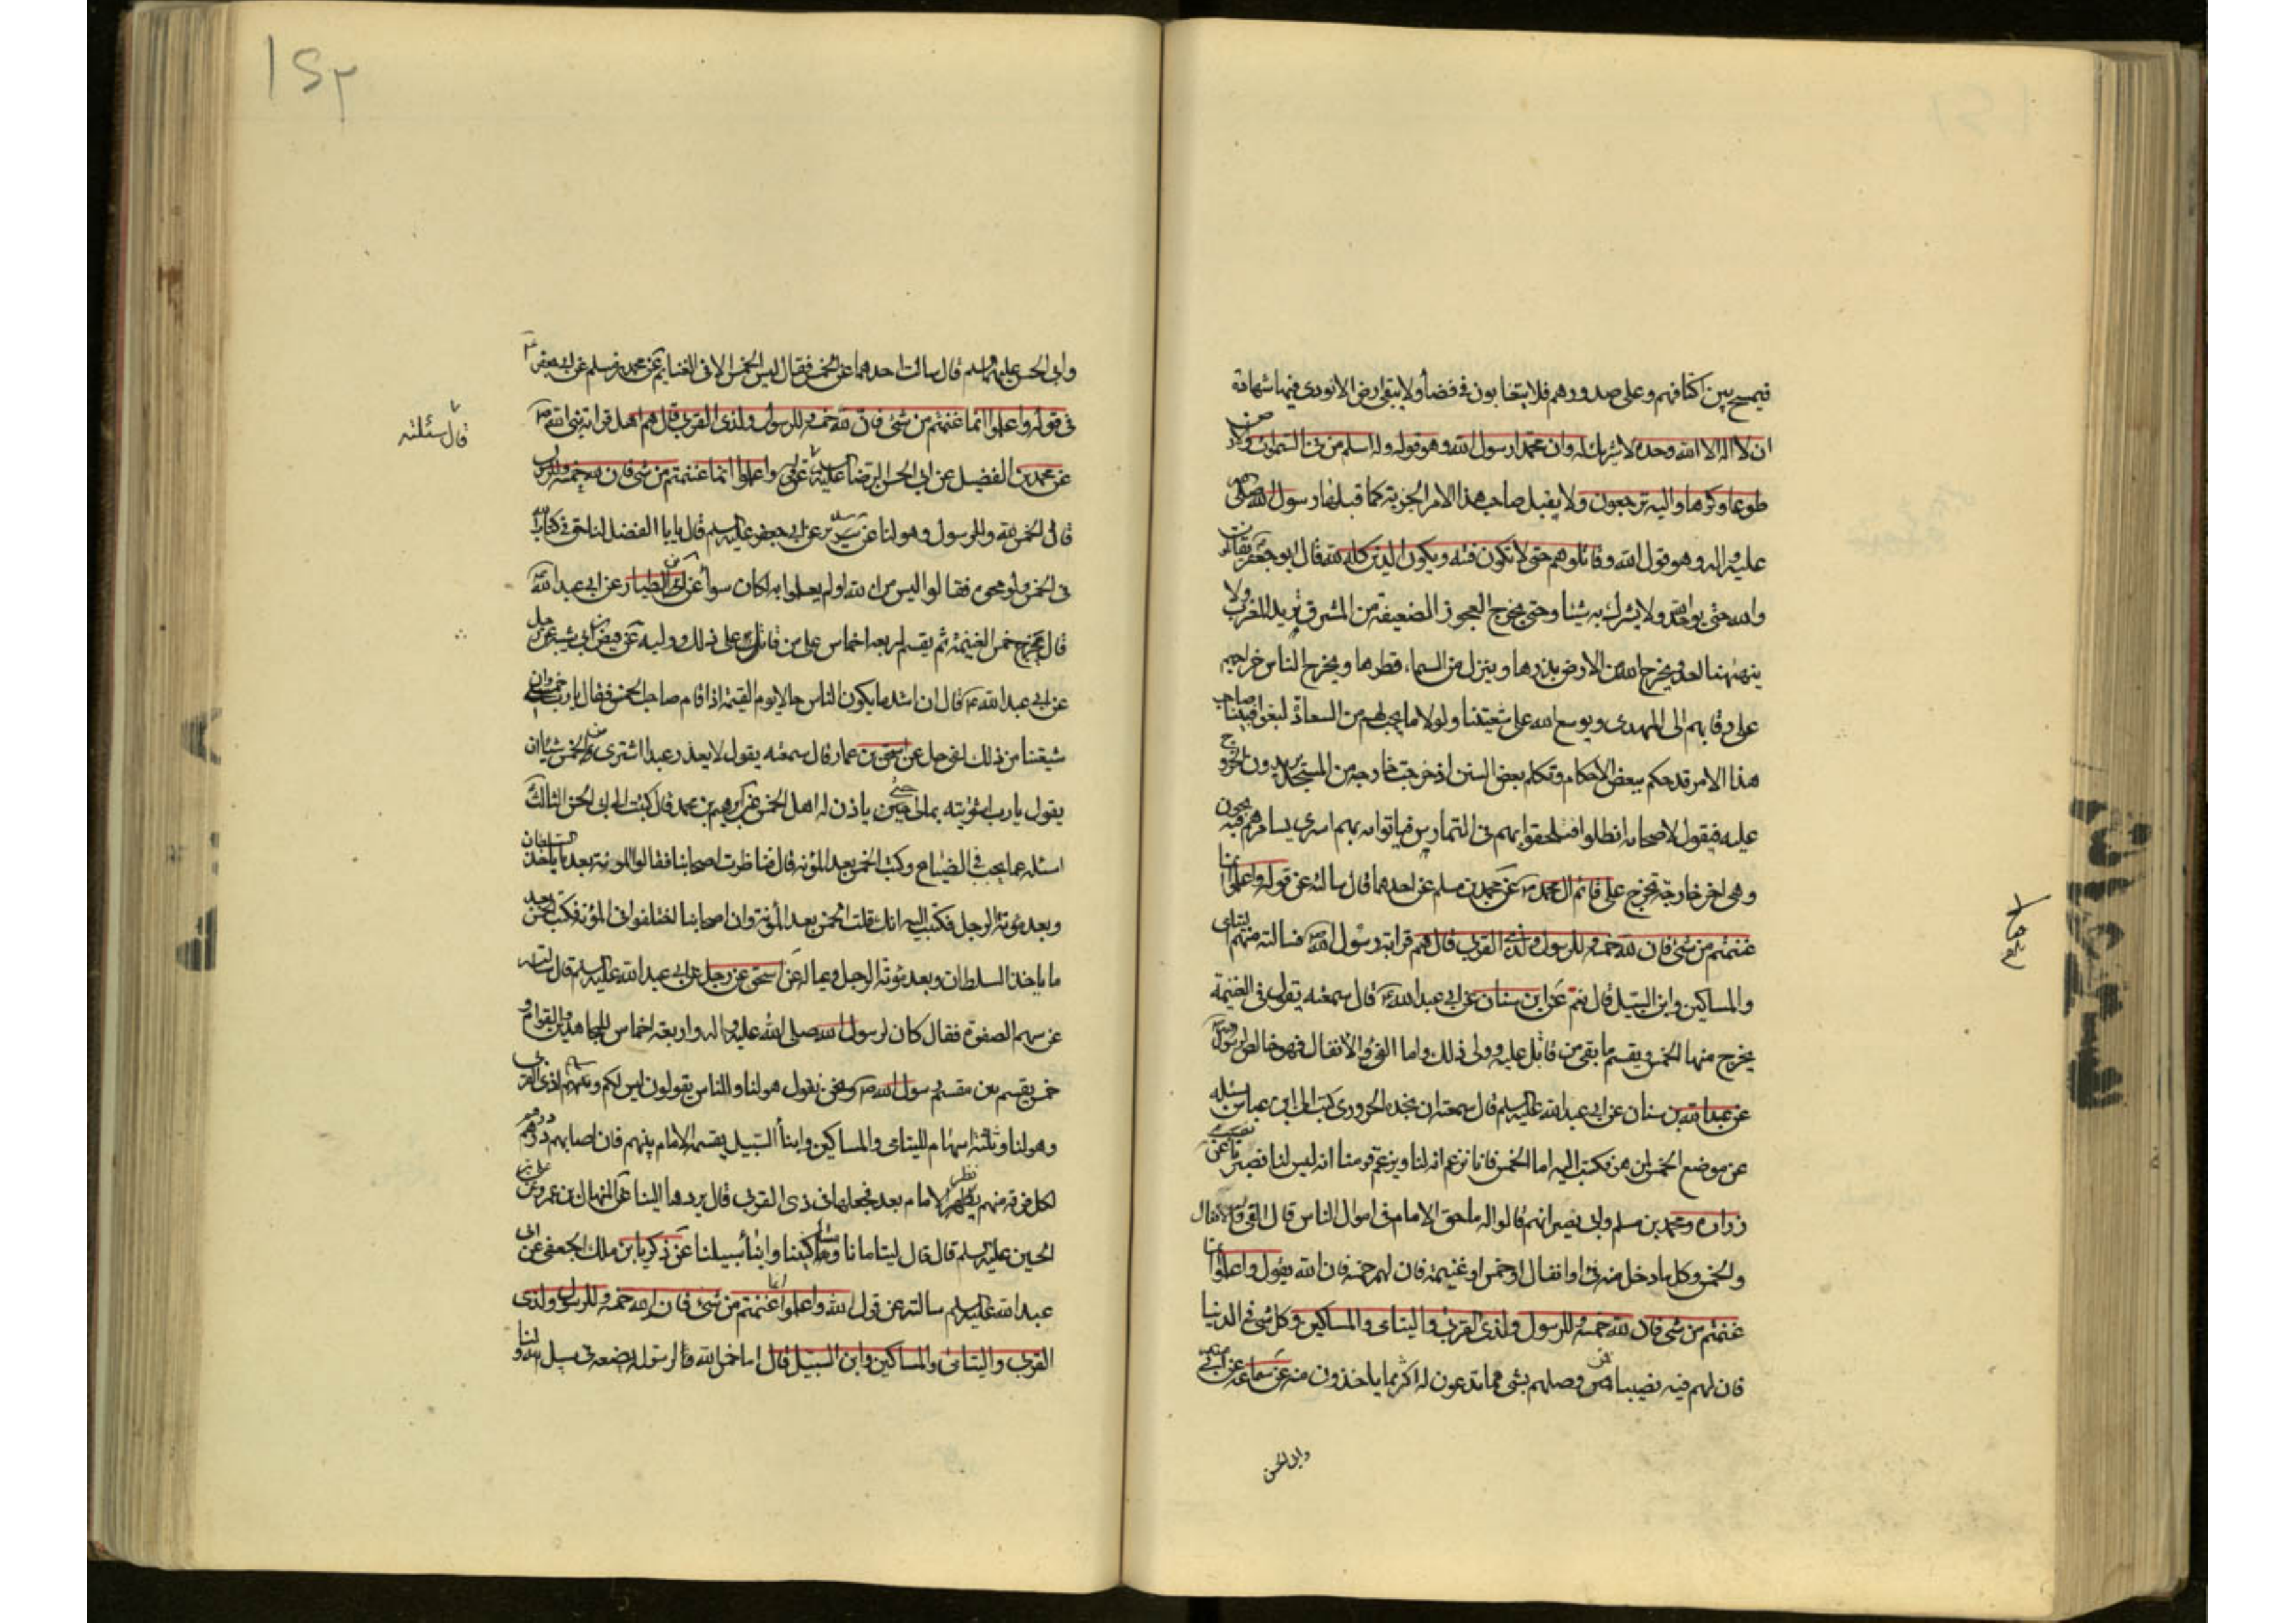 فيمسح بين اكتافهم وعلى صدورهم فلا يتعايون في قضأ ولا يبقى ارض الا نودى فيها شهادة
ان لا اله الا الله وحده لا شريك له وان محمدا رسول الله وهو قوله وله اسلم من في السموات والارض
طوعا وكرها واليه ترجعون ولا يقبل صاحب هذا الامر الجزية كما قبلها رسول الله صلى الله
عليه واله وهو قول الله وقاتلوهم حتى لا تكون فتنه ويكون الدين كله لله قال ابو جعفر يقاتلون
والله حتى يوحد الله ولا يشرك به شيئا وحتى يخرج العجوز الضعيفة من المشرق تريد المغرب ولا
ينهنهها احد ويخرج الله من الارض بذرها وينزل من السماء قطرها ويخرج الناس خراجهم
على رقابهم الى المهدى ويوسع الله على شيعتنا ولولا ما يجب لهم من السعادة لبغوا فبينا صاحب
هذا الامر قد حكم ببعض الاحكام وتكلم ببعض السنن اذ خرجت خارجة من المسجد يريدون الخروج
عليه فيقول لاصحابه انطلقوا فيلحقوا بهم في التمارين فياتوا به بهم اسرى يسامرهم فيذبحون
وهى اخر خارجة تخرج على قائم ال محمد عن محمد بن مسلم عن احدهما قال سالته عن قوله واعلموا انما
غنمتم من شئ فان لله خمسه وللرسول ولذى القربى قال هم قرابة رسول الله فسالته منهم اليتامى
والمساكين وابن السبيل قال نعم عن ابن سنان عن ابى عبد الله قال سمعته يقول في الغنيمة
يخرج منها الخمس ويقسم ما بقى من قاتل عليه وولى ذلك واما الفئ والانفال فهو خالص لرسول الله
عن عبد الله بن سنان عن ابى عبد الله عليه السلم قال سمعته ان نجدة الحرورى كتب الى ابن عباس يسئله
عن موضع الخمس لمن هو فكتب اليه اما الخمس فانا نزعم انه لنا ويزعم قومنا انه ليس لنا فصبرنا عن
زرارة ومحمد بن مسلم وابى بصير انهم قالوا له ما حق الامام في اموال الناس قال الفئ والانفال
والخمس وكل ما دخل منه فئ او انفال او خمس او غنيمة فان لهم خمسه فان الله يقول واعلموا انما
غنمتم من شئ فان لله خمسه وللرسول ولذى القربى واليتامى والمساكين وكل شئ في الدنيا
فان لهم فيه نصيبا فمن وصلهم بشئ فما تدعون له اكثر مما ياخذون منه عن سماعة عن ابى
وابى الحسن
١٥٢
وابى الحسن عليهما السلم قال سالت احدهما عن الخمس فقال ليس الخمس الا في الغنايم عن محمد بن مسلم عن ابى جعفر
في قوله واعلموا انما غنمتم من شئ فان لله خمسه وللرسول ولذى القربى قال هم اهل قرابة نبى الله
قال سئلته
عن محمد بن الفضيل عن ابى الحسن الرضا عليه السلم عن قول واعلموا انما غنمتم من شئ فان لله خمسه وللرسول
قال الخمس لله والرسول وهو لنا عن سدير عن ابى جعفر عليه السلم قال يا ابا الفضل لنا حق في كتاب الله
في الخمس فلو محوه فقالوا ليس من الله او لم يعملوا به لكان سوأ عن ابن الطيار عن ابى عبد الله
قال يخرج خمس الغنيمة ثم يقسم اربعه اخماس على من قاتل على ذلك ووليه عن فيض بن ابى شيبه عن رجل
عن ابى عبد الله قال ان اشد ما يكون الناس حالا يوم القيمة اذا قام صاحب الخمس فقال يا رب خمسى وان
شيعتنا من ذلك لفى حل عن اسحق بن عمار قال سمعته يقول لا يعذر عبد اشترى من الخمس شيئا ان
يقول يا رب اشتريته بمالى حتى ياذن له اهل الخمس عن ابرهيم بن محمد قال كتبت الى ابى الحسن الثالث
اسئله عما يجب في الضياع وكتب الخمس بعد المؤنه قال فناظرت اصحابنا فقالوا المؤنة بعد ما ياخذ السلطان
وبعد مؤنة الرجل فكتبت اليه انك قلت الخمس بعد المؤنة وان اصحابنا اختلفوا في المؤنه فكتب الخمس بعد
ما ياخذ السلطان وبعد مؤنة الرجل وعياله عن اسحق عن رجل عن ابى عبد الله عليه السلم قال سالته
عن سهم الصفوة فقال كان لرسول الله صلى الله عليه واله واربعة اخماس للمجاهدين والقوام و
خمس يقسم بين مقسم رسول الله ونحن نقول هو لنا والناس يقولون ليس لكم وسهم لذى القربى
وهو لنا وثلثة اسهام لليتامى والمساكين وابنأ السبيل يقسمه الامام بينهم فان اصابهم درهم درهم
لكل فرقة منهم نظر الامام بعد فجعلها في ذى القربى قال يردها الينا عن المنهال بن عمرو عن على بن
الحسين عليه السلم قال قال ليتامانا ومساكيننا وابنأ سبيلنا عن زكريا بن ملك الجعفى عن ابى
عبد الله عليه السلم سالته عن قول الله واعلموا انما غنمتم من شئ فان لله خمسه وللرسول ولذى
القربى واليتامى والمساكين وابن السبيل قال اما خمس الله فالرسول يضعه في سبيل الله ولنا